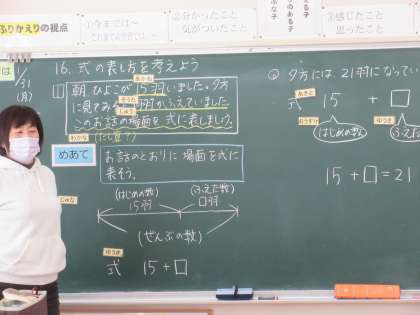 ふりかえりの視点
①今までは〜
これまでの学習では、〜
②分かったこと
気がついたこと
③感じたこと
思ったこと
のある子
ふな子
1/31
(月)
16. 式の表し方を考えよう
朝、ひよこが15羽いました。夕方
に見てみると
羽ふえていました。
このお話の場面を式に表しましょう。
めあて
お話のとおりに場面を式に
表そう。
(はじめの数)
15羽
(ふえた数)
□羽
(ぜんぶの数)
じゅな
ゆうき
式 15+□
夕方には21羽になってい
あさと
式 15 + □
おうすけ
ゆうき
はじめの数
15+□=21